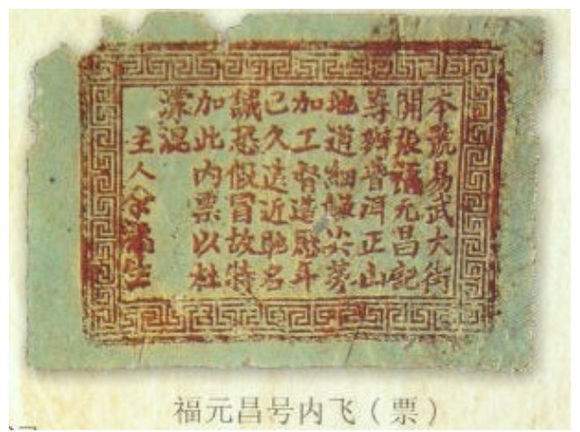 本號易武大街
開張福元昌記
專辦普洱正山
地道細嫩尖芽
加工督造歷年
已久遠近馳名
誠恐假冒故特
加此内票以杜
濛混
主人余福生
福元昌号内飞（票）